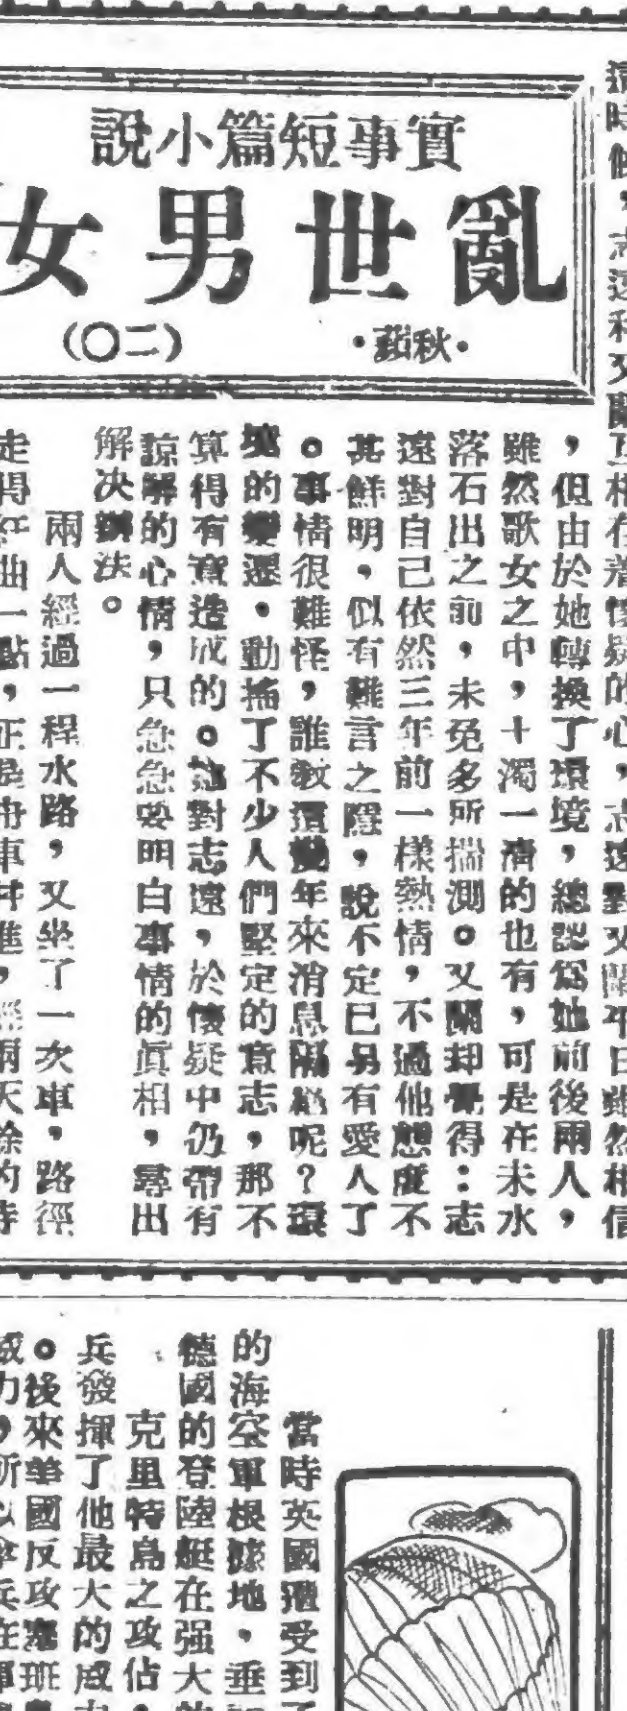 實事短篇小說
亂世男女
(二〇)
·秋蘋·
這時候，志遠和文蘭互相存着懷疑的心，志遠對文蘭平日雖然相信
，但由於她轉換了環境，總認爲她前後兩人，
雖然歌女之中，十濁一清的也有，可是在未水
落石出之前，未免多所揣測。文蘭却覺得：志
遠對自己依然三年前一樣熱情，不過他態度不
甚鮮明，似有難言之隱，說不定已另有愛人了
。事情很難怪，誰教這幾年來消息隔絕呢？環
境的變遷，動搖了不少人們堅定的意志，那不
算得有意造成的。她對志遠，於懷疑中仍帶有
諒解的心情，只急急要明白事情的眞相，尋出
解决辦法。
兩人經過一程水路，又坐了一次車，路徑
走得紆曲一點，正是舟車幷進，經兩天餘的時
當時英國遭受到了
的海空軍根據地，垂
德國的登陸艇在强大的
克里特島之攻佔，
兵發揮了他最大的威力
。後來華國反攻塞班島
威力，所以傘兵在軍